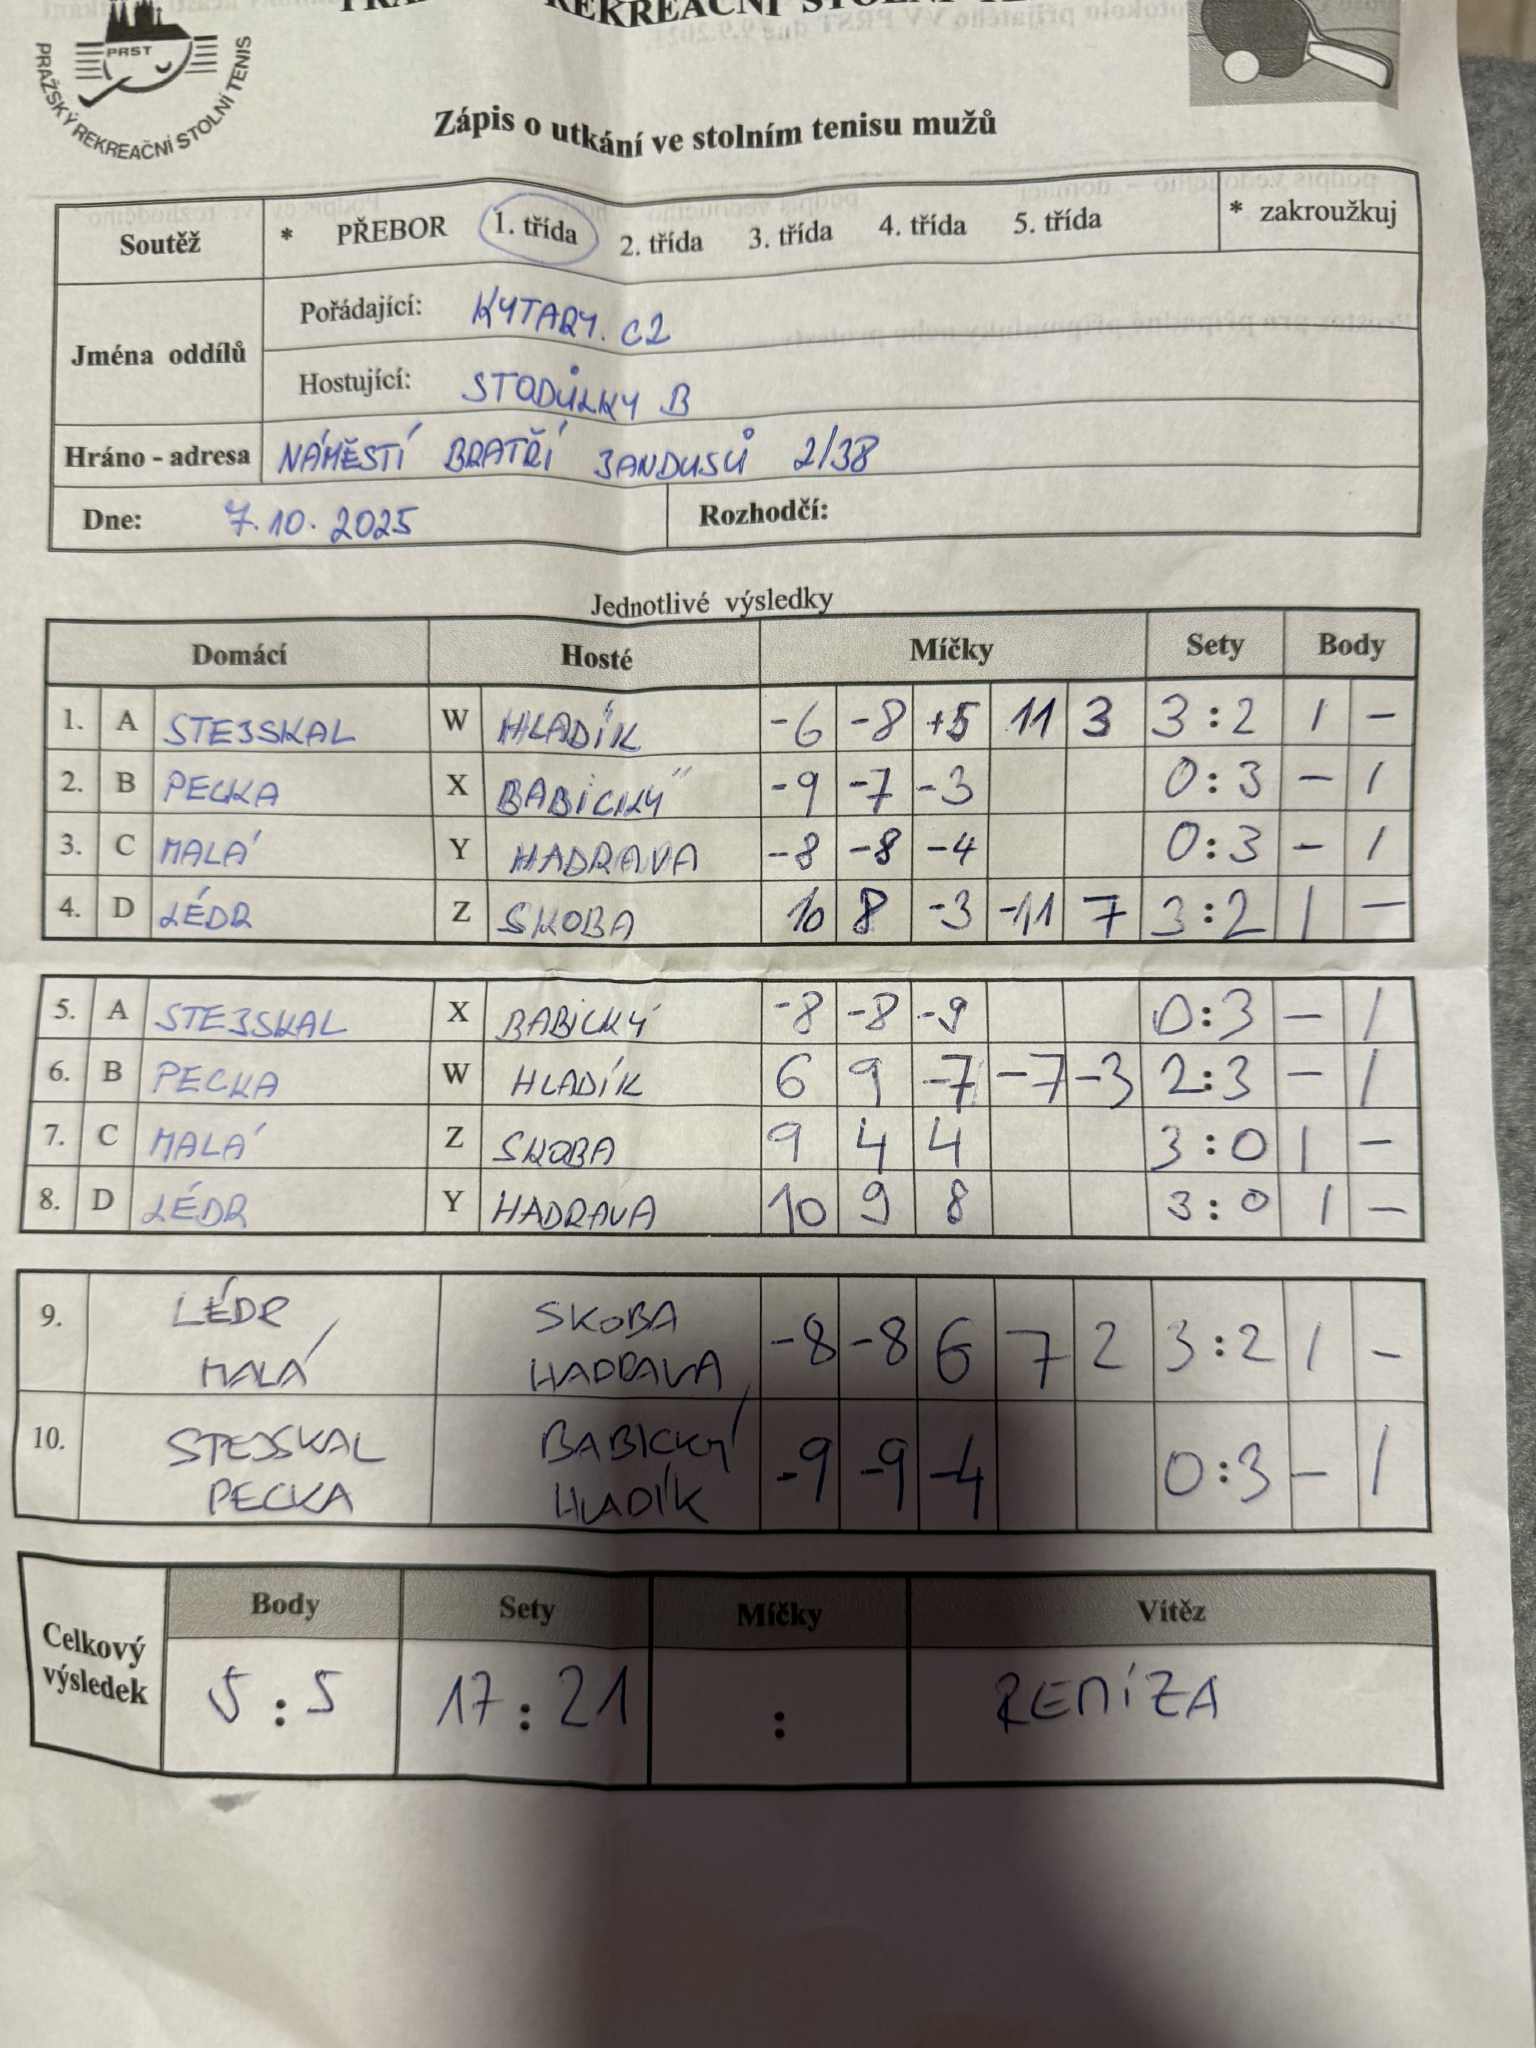 REKREAČNÍ STOLNÍ
PRST
PRAŽSKÝ REKREAČNÍ STOLNÍ TENIS
Zápis o utkání ve stolním tenisu mužů
Soutěž * PŘEBOR 1. třída 2. třída 3. třída 4. třída 5. třída * zakroužkuj
Jména oddílů
Pořádající: KYTARY.C2
Hostující: STODŮLKY B
Hráno - adresa NÁMĚSTÍ BRATŘÍ JANDUSŮ 2/38
Dne: 7.10.2025 Rozhodčí:
Jednotlivé výsledky
Domácí Hosté Míčky Sety Body
1. A STEJSKAL W HLADÍK -6 -8 +5 11 3 3:2 1 -
2. B PECKA X BABICKÝ -9 -7 -3 0:3 - 1
3. C MALÁ Y HADRAVA -8 -8 -4 0:3 - 1
4. D LÉDR Z SKOBA 10 8 -3 -11 7 3:2 1 -
5. A STEJSKAL X BABICKÝ -8 -8 -9 0:3 - 1
6. B PECKA W HLADÍK 6 9 -7 -7 -3 2:3 - 1
7. C MALÁ Z SKOBA 9 4 4 3:0 1 -
8. D LÉDR Y HADRAVA 10 9 8 3:0 1 -
9. LÉDR SKOBA -8 -8 6 7 2 3:2 1 -
MALÁ HADRAVA
10. STEJSKAL BABICKÝ -9 -9 -4 0:3 - 1
PECKA HLADÍK
Celkový výsledek
Body Sety Míčky Vítěz
5:5 17:21 : REMÍZA